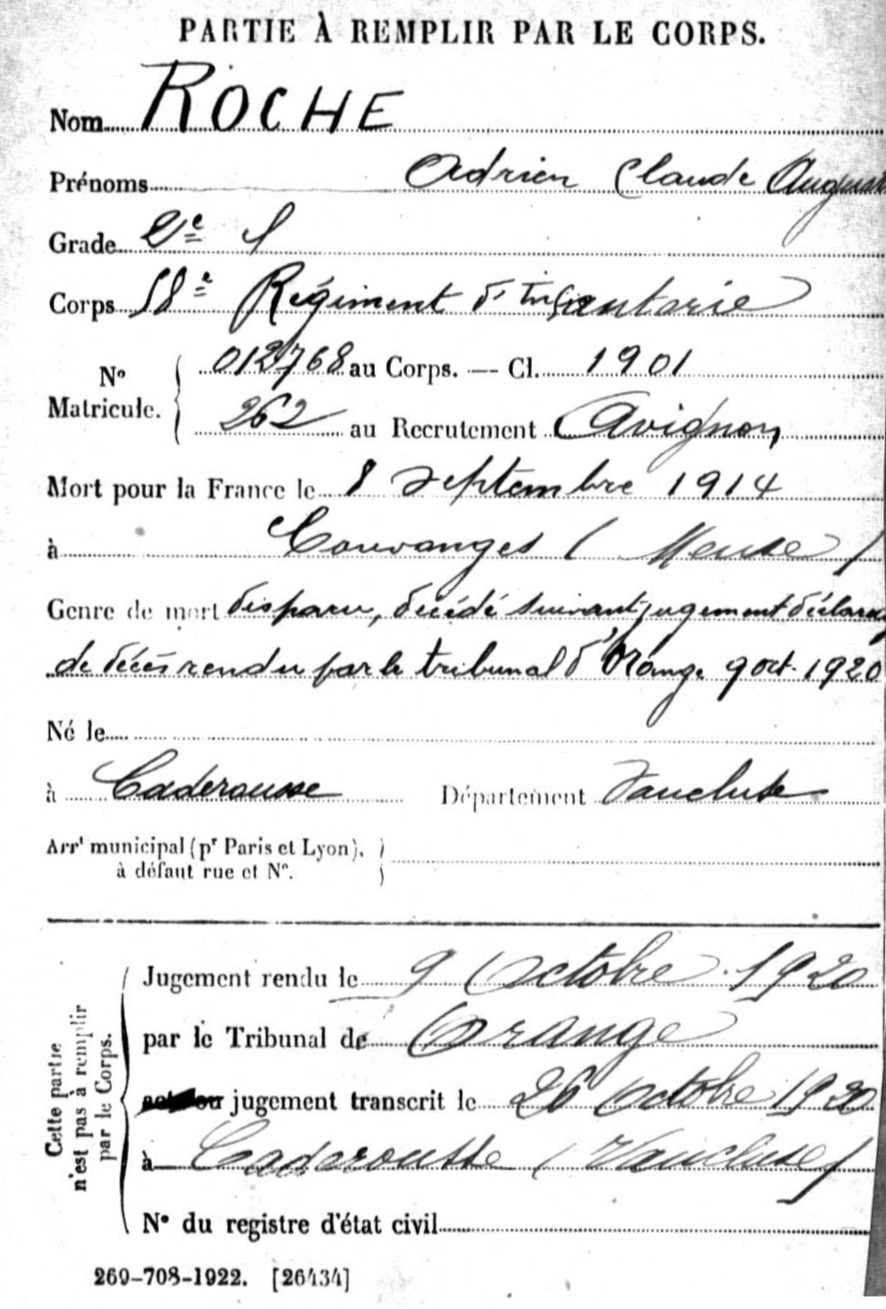 PARTIE À REMPLIR PAR LE CORPS.
Nom ROCHE
Prénoms Adrien Claude August
Grade 2e S
Corps 58e Régiment d'Infanterie
No Matricule. 012768 au Corps. — Cl. 1901
262 au Recrutement Avignon
Mort pour la France le 8 Septembre 1914
à Couvanges (Meuse)
Genre de mort disparu, décédé suivant jugement déclarat
de décès rendu par le tribunal d'Orange 9 oct. 1920
Né le
à Caderousse Département Vaucluse
Arrt municipal (pr Paris et Lyon),
à défaut rue et No.
Cette partie
n'est pas à remplir
par le Corps.
Jugement rendu le 9 Octobre 1920
par le Tribunal de Orange
jugement transcrit le 26 Octobre 1920
à Caderousse (Vaucluse)
No du registre d'état civil
269-708-1922. [26434]